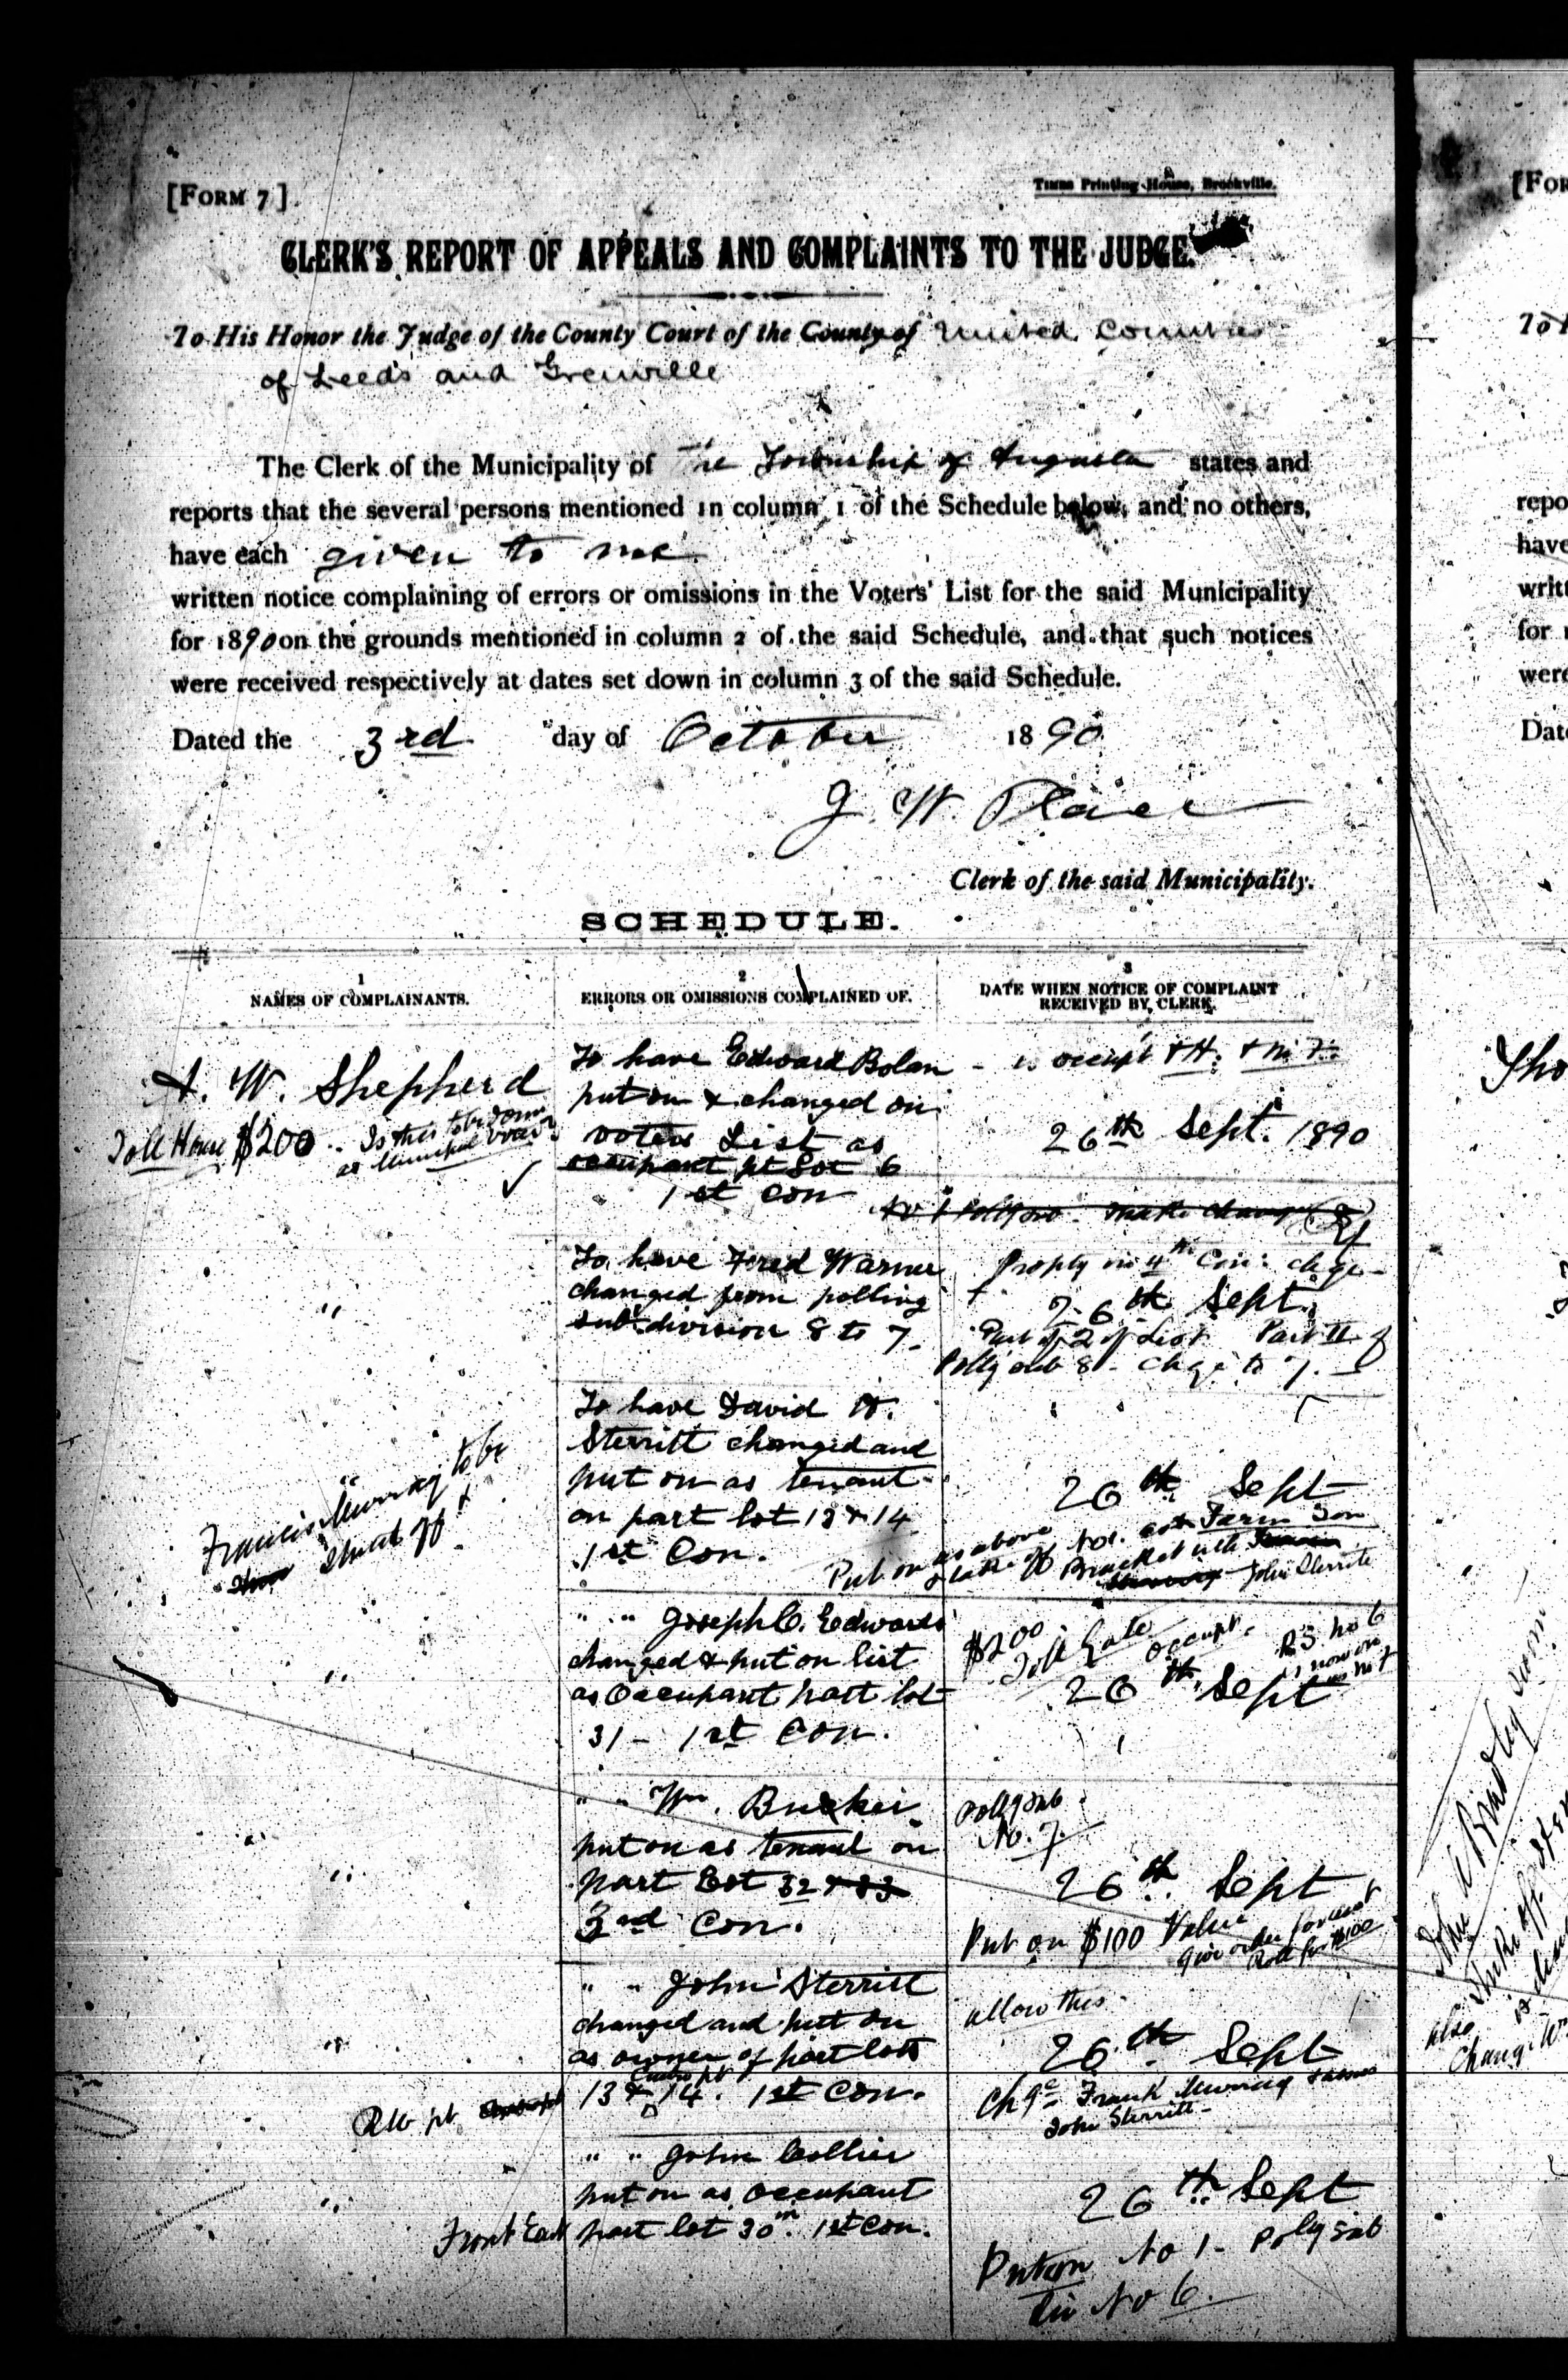 [FORM 7]
Times Printing House, Brockville.
CLERK'S REPORT OF APPEALS AND COMPLAINTS TO THE JUDGE.
To His Honor the Judge of the County Court of the County of United Counties
of Leeds and Grenville
The Clerk of the Municipality of The Township of Augusta states and
reports that the several persons mentioned in column 1 of the Schedule below, and no others,
have each given to me
written notice complaining of errors or omissions in the Voters' List for the said Municipality
for 1890 on the grounds mentioned in column 2 of the said Schedule, and that such notices
were received respectively at dates set down in column 3 of the said Schedule.
Dated the 3rd day of October 1890
J. W. Place
Clerk of the said Municipality.
SCHEDULE.
1
NAMES OF COMPLAINANTS.
2
ERRORS OR OMISSIONS COMPLAINED OF.
3
DATE WHEN NOTICE OF COMPLAINT
RECEIVED BY CLERK.
A. W. Shepherd
Toll House $200 Is this to be done
as Municipal
To have Edward Bolan
put on & changed on
voters List as
occupant pt Lot 6
1st Con
is occupt
26th Sept. 1890
make change
"
To have Fred Warner
changed from polling
sub-division 8 to 7
Propty in 4th Con: chge
26th Sept.
Part 2 of List Part II of
Polly sub 8 - chge to 7.
"
Francis Murray to be
struck off
To have David H.
Sterritt changed and
put on as tenant
on part lot 13 & 14
1st Con.
26th Sept
Put on as above
& take off Farm Son
Bracket with
John Sterritt
"
" " Joseph C. Edwards
changed & put on list
as Occupant part lot
31 - 1st Con.
$200
Toll Gate occupt. PS No 6
is now on
as No 7
26th Sept
"
" " Wm. Bucker
put on as tenant on
part Lot 32 & 33
3rd Con.
Polly sub
No. 7.
26th Sept
Put on $100 Value
Give order
Roll for $100
"
" " John Sterritt
changed and put on
as owner of part lots
13 & 14. 1st Con.
allow this
26th Sept
Chge Frank Murray
John Sterritt
"
Front East
" " John Collier
put on as Occupant
part lot 30 in 1st Con.
26th Sept
Put on No 1 - Polly sub
Div No 6.
[FOR
To H
repo
have
writt
for
were
Date
Tho
John A Bradley
Take off
also
Change